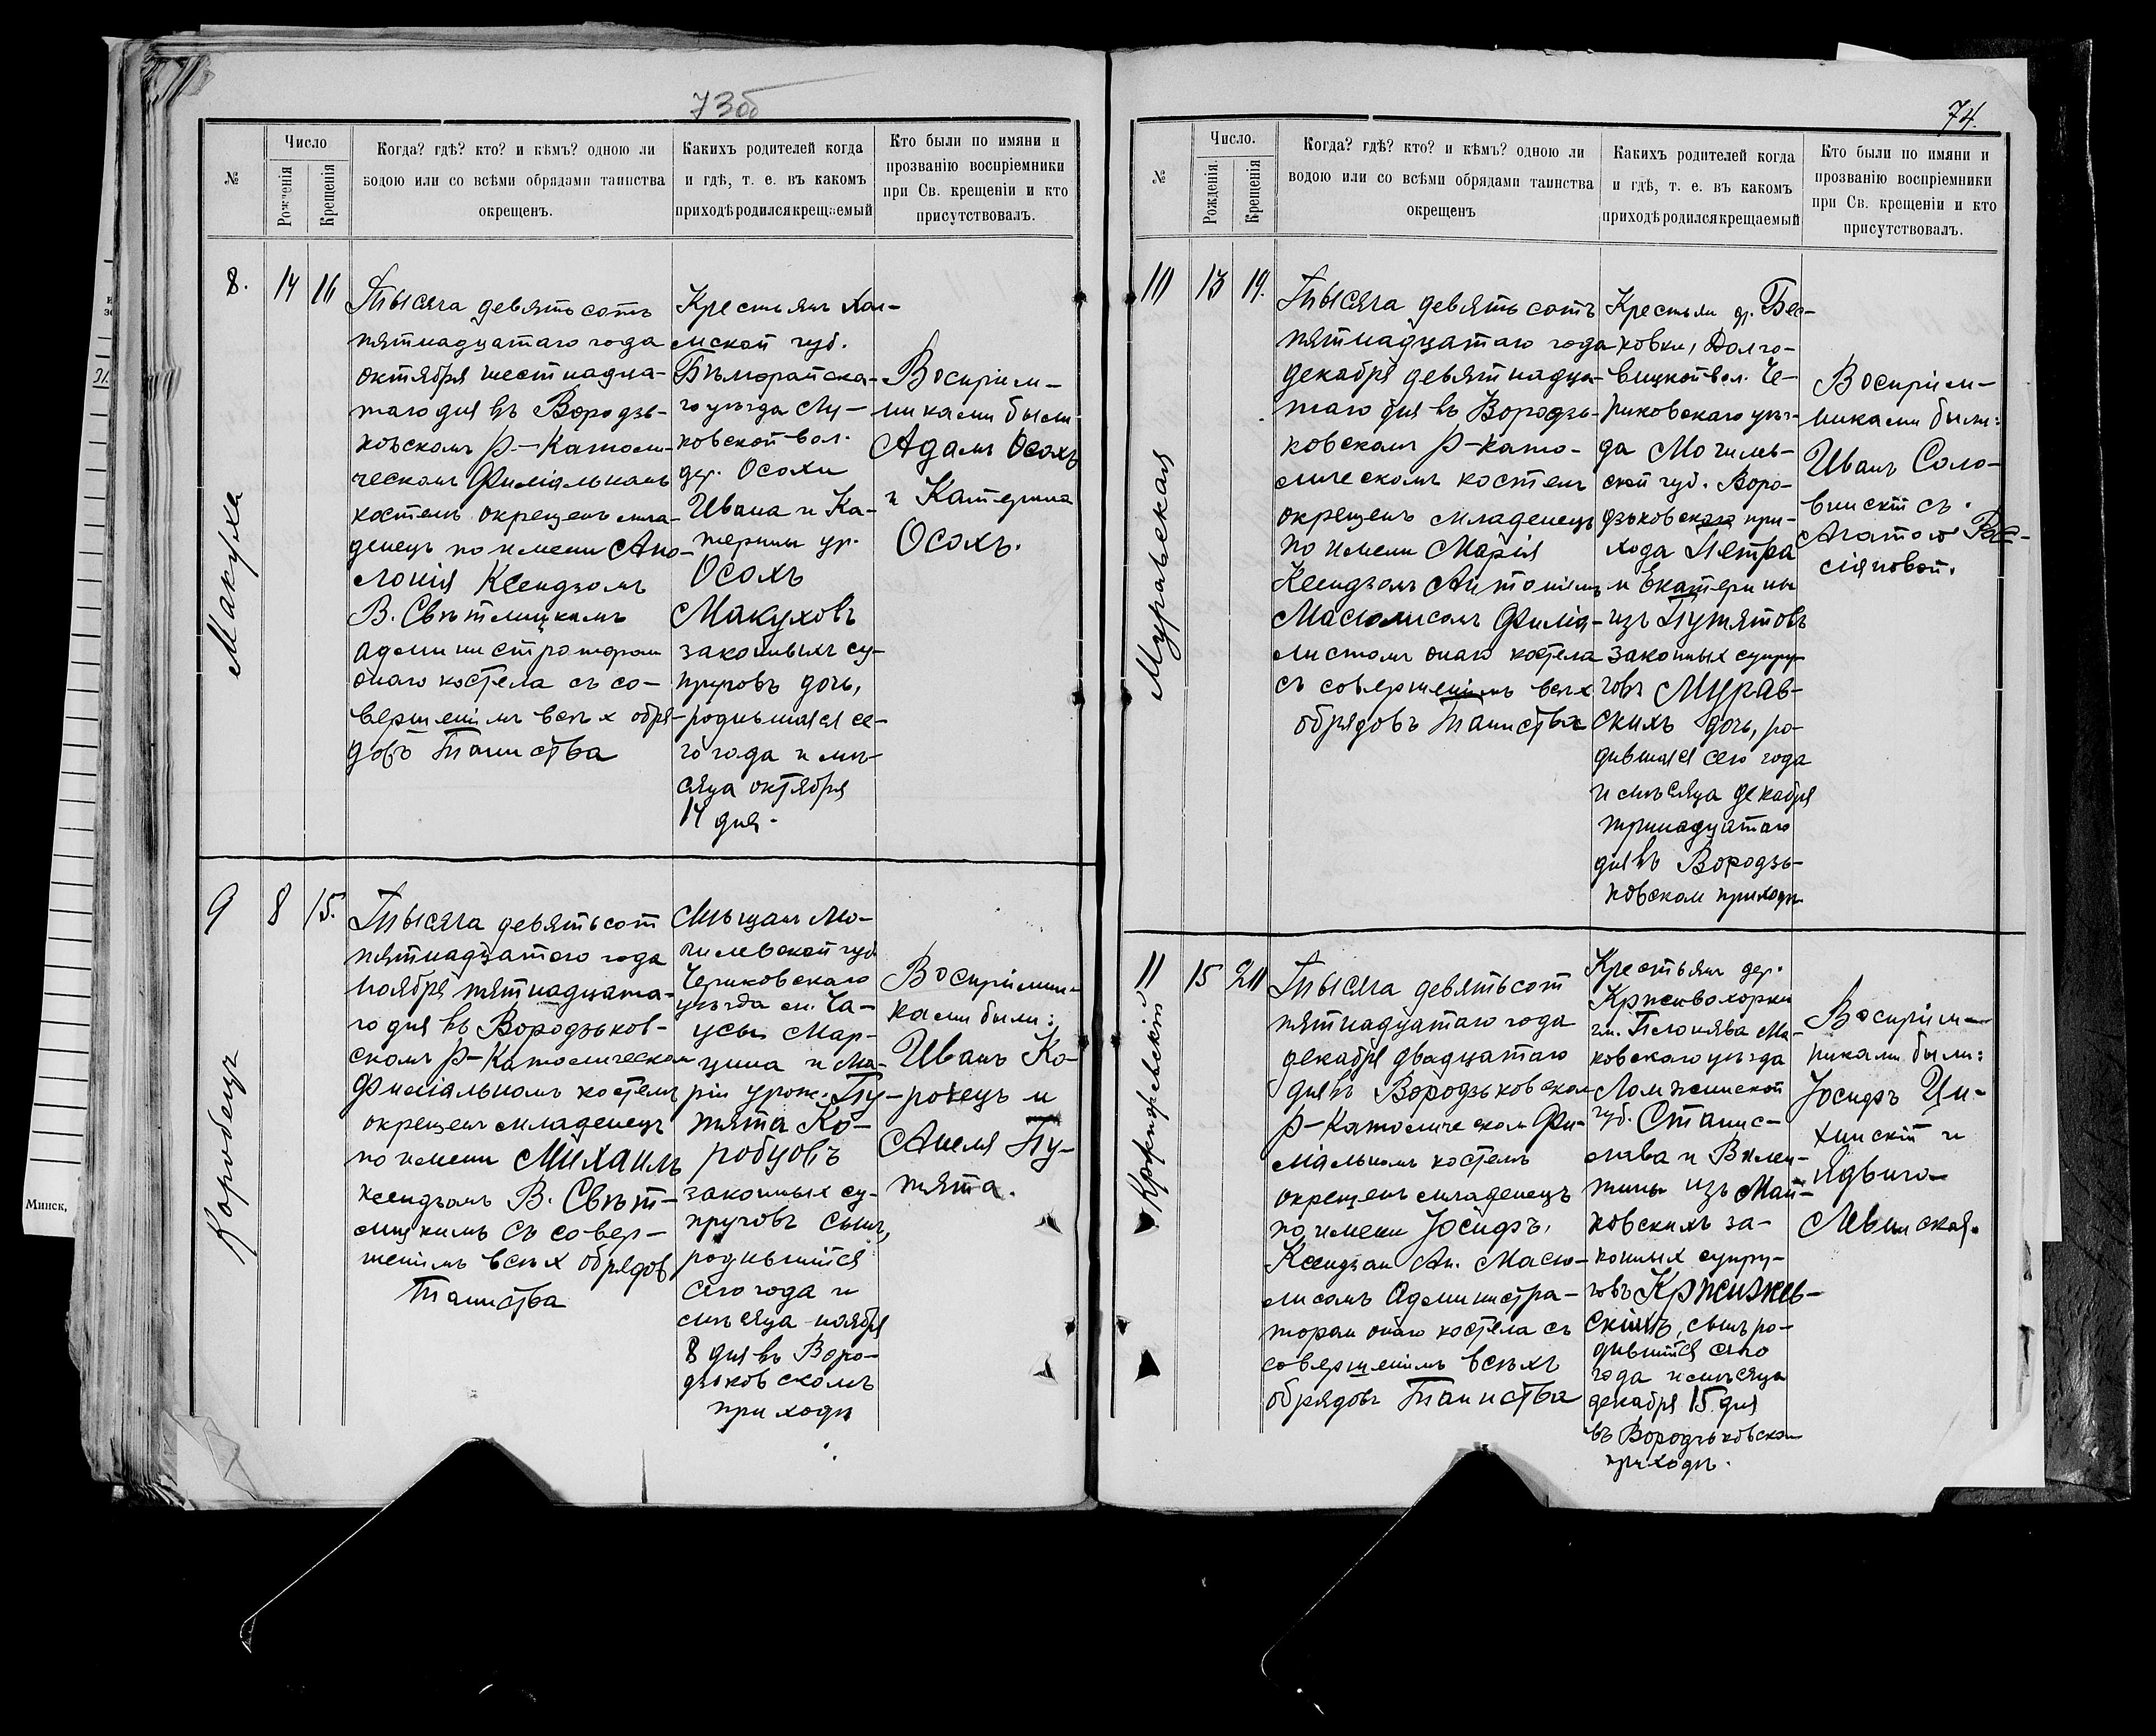 73об
№
Число
Рожденія
Крещенія
Когда? гдѣ? кто? и кѣмъ? одною ли
водою или со всѣми обрядами таинства
окрещенъ.
Какихъ родителей когда
и гдѣ, т. е. въ какомъ
приходѣ родился крещаемый
Кто были по имяни и
прозванію воспріемники
при Св. крещеніи и кто
присутствовалъ.
8.
14
16
Макуха
Тысяча девятьсотъ
пятнадцатаго года
октября шестнадца-
таго дня въ Вородзь-
ковскомъ Р-Католи-
ческомъ Филіальномъ
костелѣ окрещенъ мла-
денецъ по имени Апо-
лонія Ксендзомъ
В. Свѣтлицкимъ
администраторомъ
онаго костела съ со-
вершеніемъ всѣхъ обря-
довъ Таинства
Крестьянъ Хол-
мской губ.
Бѣлгорайска-
го уѣзда Лу-
ковской вол.
дер. Осохи
Ивана и Ка-
терины ур.
Осохъ
Макуховъ
законныхъ су-
пруговъ дочь,
родившаяся се-
го года и мѣ-
сяца октября
14 дня.
Воспріем-
никами были
Адамъ Осохъ
и Катерина
Осохъ.
9
8
15.
Коробецъ
Тысяча девятьсот
пятнадцатаго года
Ноября пятнадцата-
го дня въ Вородзьков-
скомъ Р-Католическом
Филіальномъ костелѣ
окрещенъ младенецъ
по имени Михаилъ
ксендзомъ В. Свѣт-
лицкимъ съ совер-
шеніемъ всѣхъ обрядов
Таинства
Мѣщанъ Мо-
гилевской губ
Чериковскаго
уѣзда м. Ча-
усы Мар-
цина и Ма-
ріи урож. Пу-
тята Ко-
робцовъ
законныхъ су-
пруговъ сынъ,
родившійся
сего года и
мѣсяца ноября
8 дня въ Воро-
дзьковскомъ
приходѣ
Воспріемни-
ками были:
Иванъ Ко-
робецъ и
Анеля Пу-
тята.
74.
№
Число.
Рожденія.
Крещенія
Когда? гдѣ? кто? и кѣмъ? одною ли
водою или со всѣми обрядами таинства
окрещенъ
Какихъ родителей когда
и гдѣ, т. е. въ какомъ
приходѣ родился крещаемый
Кто были по имяни и
прозванію воспріемники
при Св. крещеніи и кто
присутствовалъ.
10
13
19.
Муравская
Тысяча девятьсотъ
пятнадцатаго года
декабря девятнадца-
таго дня въ Вородзь-
ковскомъ Р-като-
лическомъ костелѣ
окрещенъ младенецъ
по имени Марія
Ксендзомъ Антоніемъ
Масюлисомъ Филіа-
листомъ онаго костела
съ совершеніемъ всѣхъ
обрядовъ Таинства
Крестьян д.
ковки, Долго-
вицкой вол. Че-
риковскаго уѣз-
да Могилев-
ской губ. Воро-
дзьковскаго при-
хода Петра
и Екатерины
изъ Путятовъ
законных супру-
говъ Мурав-
скихъ дочь, ро-
дившаяся сего года
и мѣсяца декабря
тринадцатаго
дня въ Вородзь-
ковском приходѣ
Воспріем-
никами были:
Иванъ Соло-
винскій съ
Агатою
сіяновой.
11
15
20
Тысяча девятьсот
пятнадцатаго года
декабря двадцатаго
дня въ Вородзьковском
Р-Католическом Фи-
ліальномъ костелѣ
окрещенъ младенецъ
по имени Іосифъ.
Ксендзом Ан. Масю-
лисомъ Администра-
тором онаго костела съ
совершеніемъ всѣхъ
обрядовъ Таинства
Крестьянъ дер.
гм.
ковскаго уѣзда
Ломжинской
губ. Станис-
лава и
изъ
ковскихъ за-
конных супру-
говъ Кржижев-
скихъ, сынъ ро-
дившійся сего
года и мѣсяца
декабря 15 дня
въ Вородзьковском
приходѣ.
Воспріем-
никами были:
Іосифъ Ци-
хинскій и
Ядвига
Левинская.
Минск,